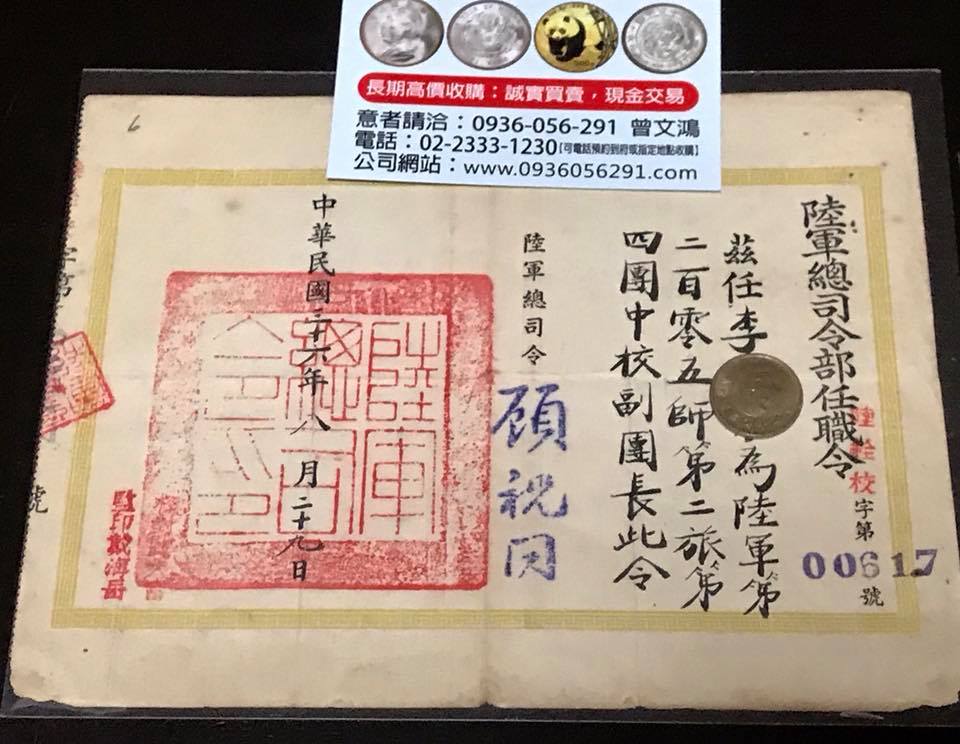 長期高價收購：誠實買賣，現金交易
意者請洽：0936-056-291 曾文鴻
電話：02-2333-1230【可電話預約到府或指定地點收購】
公司網站：www.0936056291.com
6
陸軍總司令部任職令
校字第
00617
號
茲任李 為陸軍第
二百零五師第二旅第
四團中校副團長此令
陸軍總司令
顧祝同
中華民國三十六年八月二十九日
陸軍
總司
令印
監印
號